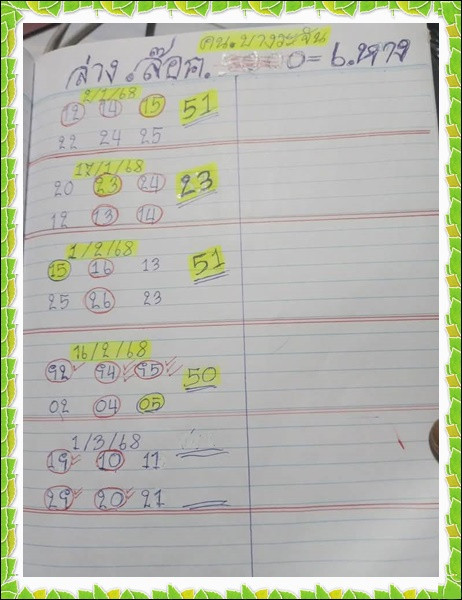 คน.บางวะจีน
ล่าง.ล๊อค. 0= เ.หาง
2/1/68
12 14 15 51
22 24 25
17/1/68
20 23 24 23
12 13 14
1/2/68
15 16 13 51
25 26 23
16/2/68
92 94 95 50
02 04 05
1/3/68
19 10 11
29 20 21